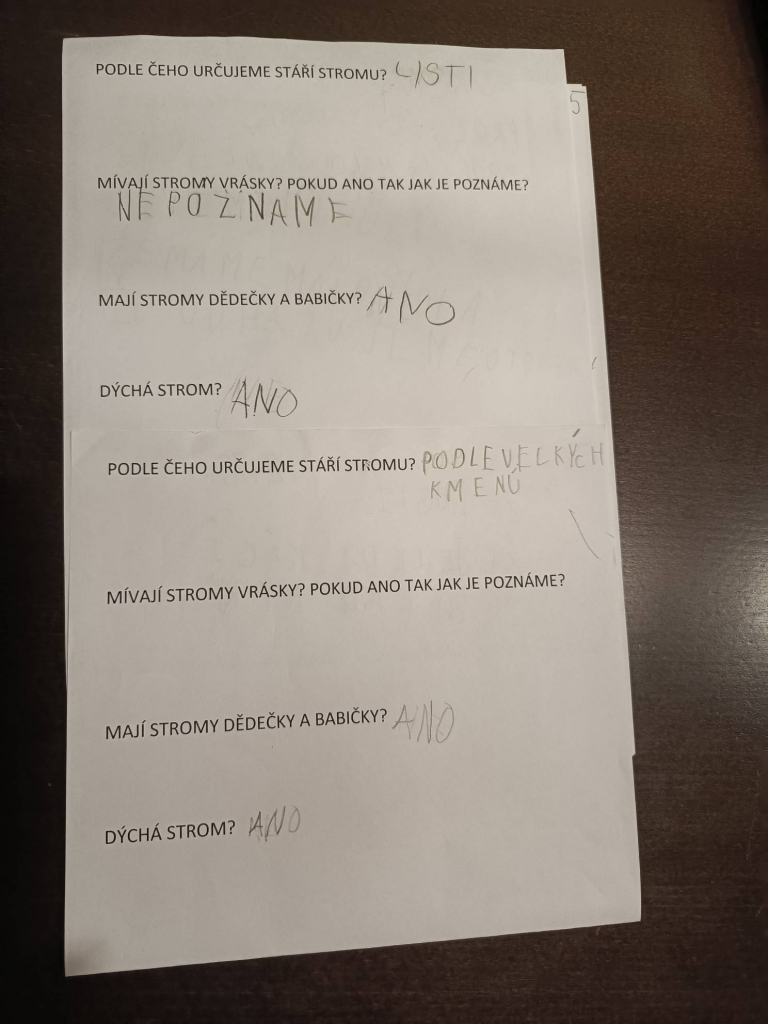 PODLE ČEHO URČUJEME STÁŘÍ STROMU? LISTI
5
MÍVAJÍ STROMY VRÁSKY? POKUD ANO TAK JAK JE POZNÁME?
NEPOZNAME
MAJÍ STROMY DĚDEČKY A BABIČKY? ANO
DÝCHÁ STROM? ANO
PODLE ČEHO URČUJEME STÁŘÍ STROMU? PODLE VELKÝCH
KMENŮ
MÍVAJÍ STROMY VRÁSKY? POKUD ANO TAK JAK JE POZNÁME?
MAJÍ STROMY DĚDEČKY A BABIČKY? ANO
DÝCHÁ STROM? ANO